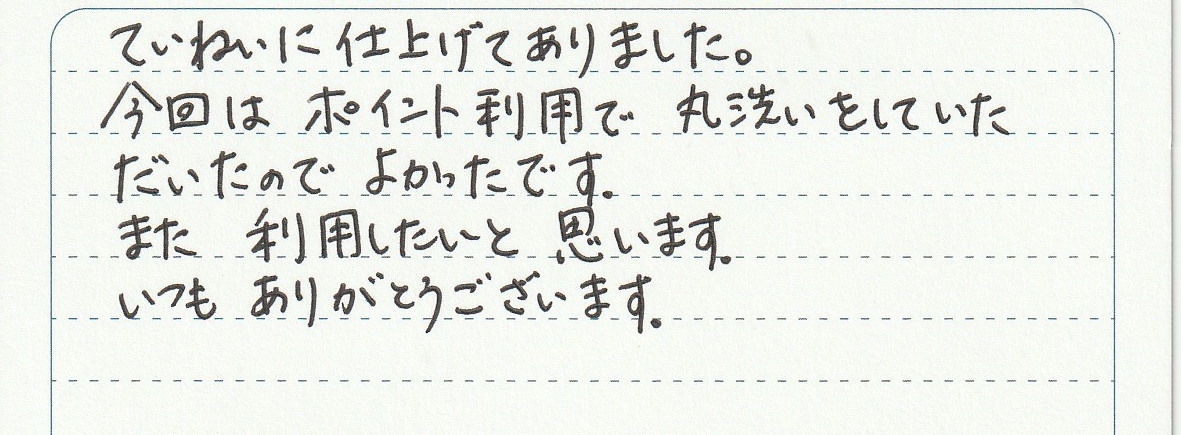 ていねいに仕上げてありました。
今回は ポイント利用で 丸洗いをしていた
だいたので よかったです.
また 利用したいと 思います.
いつも ありがとうございます.